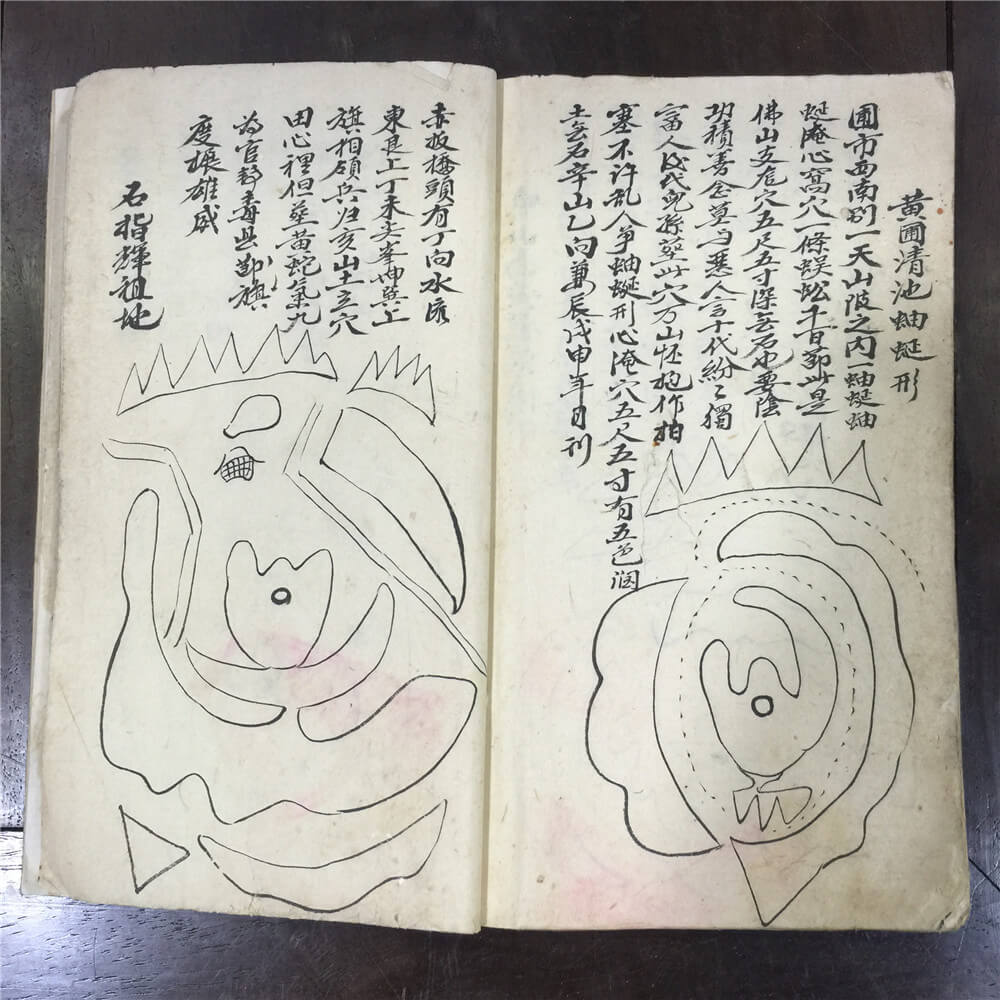 黄圃清池蚰蜒形
圃市西南别一天山陂之内一蚰蜒蚰
蜒淹心窩穴一條蜈蚣千百節此是
佛山支危穴五尺五寸深無石也要陰
功積善念莫与惡人言十代紛々獨
富人後代兒孫葬此穴万山怀抱作柏
塞不许乱人争蚰蜒形心淹穴五尺五寸有五色润
土無石辛山乙向兼辰戌申年月刊
赤板橋頭有丁向水底
東艮上丁未尖峯坤巽上
旗相領兵归亥山土立穴
田心裡但葬黄蛇氣九
为官都毒縣節旗
度振雄威
石指輝祖地